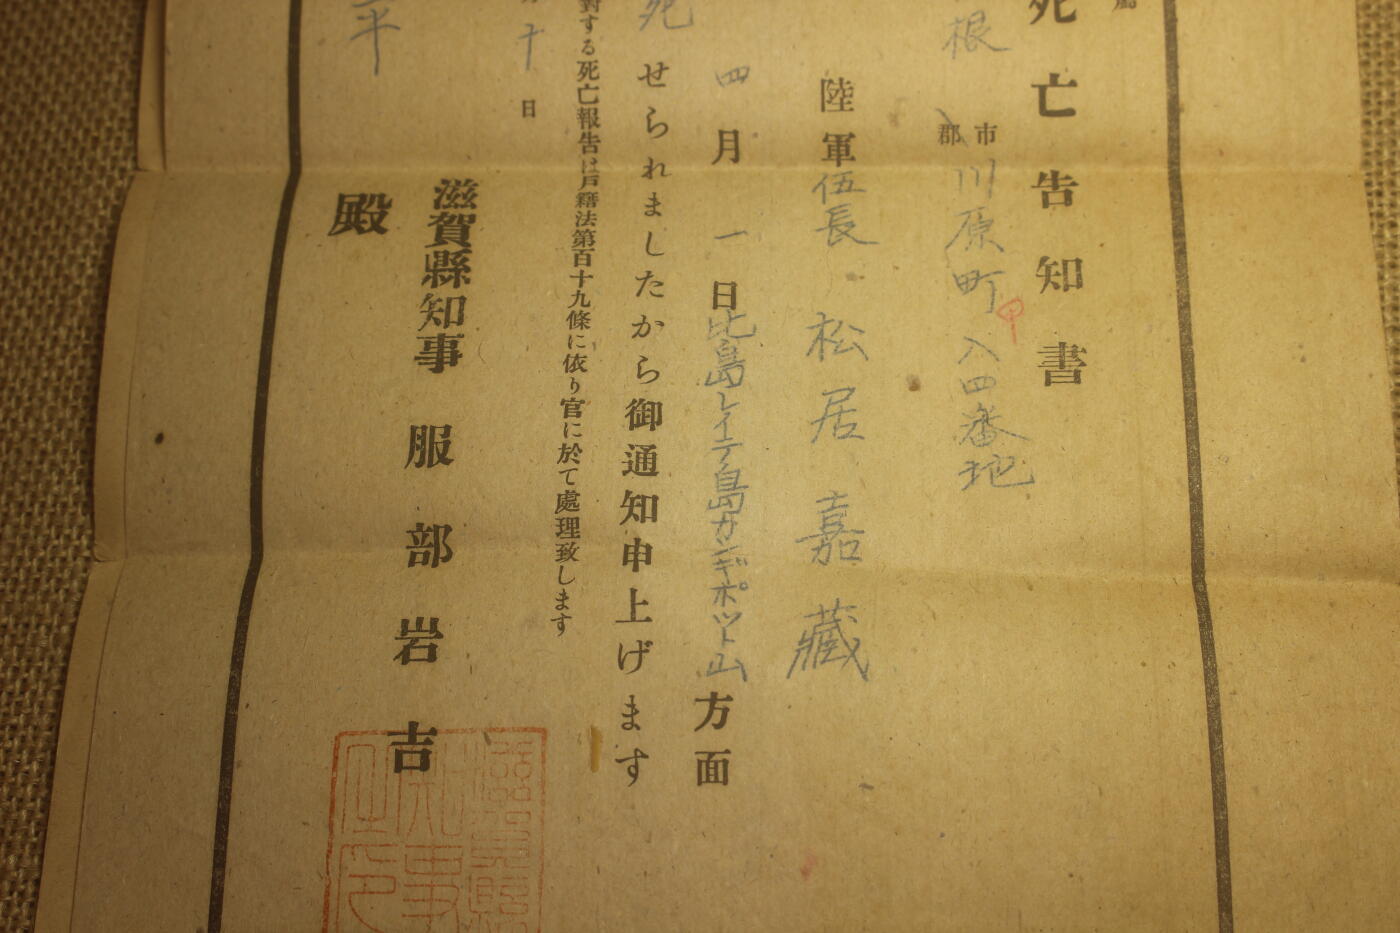 死亡告知書
根
市
郡
川原町八四番地
陸軍伍長 松居嘉藏
四月一日比島レイテ島カンギポット山方面
死せられましたから御通知申上げます
對する死亡報告は戸籍法第百十九條に依り官に於て處理致します
十日
滋賀縣知事 服部岩吉
平
殿
滋賀縣
知事
印